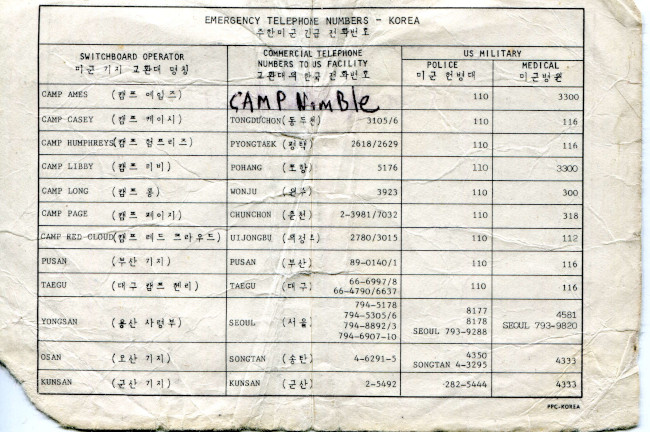 EMERGENCY TELEPHONE NUMBERS - KOREA
주한미군 긴급 전화번호
SWITCHBOARD OPERATOR
미군 기지 교환대 명칭
COMMERCIAL TELEPHONE
NUMBERS TO US FACILITY
교환대의 한국 전화번호
US MILITARY
POLICE
미군 헌병대
MEDICAL
미군병원
CAMP AMES (캠프 에임즈) CAMP Nimble 110 3300
CAMP CASEY (캠프 케이시) TONGDUCHON (동두천) 3105/6 110 116
CAMP HUMPHREYS (캠프 험프리즈) PYONGTAEK (평택) 2618/2629 110 116
CAMP LIBBY (캠프 리비) POHANG (포항) 5176 110 3300
CAMP LONG (캠프 롱) WONJU (원주) 3923 110 300
CAMP PAGE (캠프 페이지) CHUNCHON (춘천) 2-3981/7032 110 318
CAMP RED CLOUD (캠프 레드 크라우드) UIJONGBU (의정부) 2780/3015 110 112
PUSAN (부산 기지) PUSAN (부산) 89-0140/1 110 116
TAEGU (대구 캠프 헨리) TAEGU (대구) 66-6997/8
66-4790/6637 110 116
YONGSAN (용산 사령부) SEOUL (서울) 794-5178
794-5305/6
794-8892/3
794-6907-10
8177
8178
SEOUL 793-9288
4581
SEOUL 793-9820
OSAN (오산 기지) SONGTAN (송탄) 4-6291-5 4350
SONGTAN 4-3295 4333
KUNSAN (군산 기지) KUNSAN (군산) 2-5492 282-5444 4333
PPC-KOREA